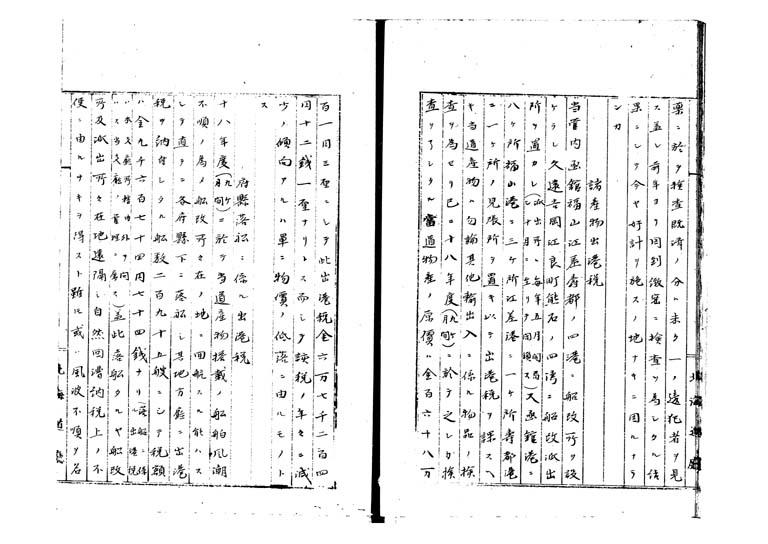 粟ニ於テ検査既済ノ分ハ未タ一ノ違犯者ヲ見
ス蓋シ前年ヨリ周到緻密ニ検査ヲ為シタル結
果ニシテ今ヤ好計ヲ施スノ地ナキニ因ルナラ
ンカ
諸産物出港税
当管内函館福山江差寿都ノ四港ニ船改所ヲ設
ケ
久遠
江良町熊石ノ四湾ニ船改派出
所ヲ置カレ
派出所ハ毎年五月
又函館港ニ
八ヶ所福山港ニ三ヶ所江差港ニ一ヶ所寿都港
ニ一ヶ所ノ見張所ヲ置キ以テ出港税ヲ課スヘ
キ当道産物ハ勿論其他輸出入ニ係ル物品ノ検
査ヲ為セリ已ニ十八年度
ニ於テ之レカ検
査ヲ了シタル当道物産ノ原価ハ金百六十八万
百一円三
ニシテ此出港税金六万七千二百四
円十二銭一
ナリトス而シテ該税ノ年々ニ減
少ノ傾向アルハ単ニ物価ノ低落ニ由ルモノト
ス
府県落船ニ係ル出港税
十八年度
ニ於テ当道産物搭載ノ船舶風潮
不順ノ為メ船改所々在ノ地ニ回航スル能ハス
シテ直チニ各府県下ニ落船シ其地方庁ニ出港
税ヲ納付シタル船数二百九十五艘ニシテ税額
ハ金九千六百七十四円七十四銭ナリ
蓋此落船タルヤ船改
所及派出所々在地遠隔シ自然回漕納税上ノ不
便ニ由ルナキヲ得スト雖トモ或ハ風波不順ヲ名
北海道庁